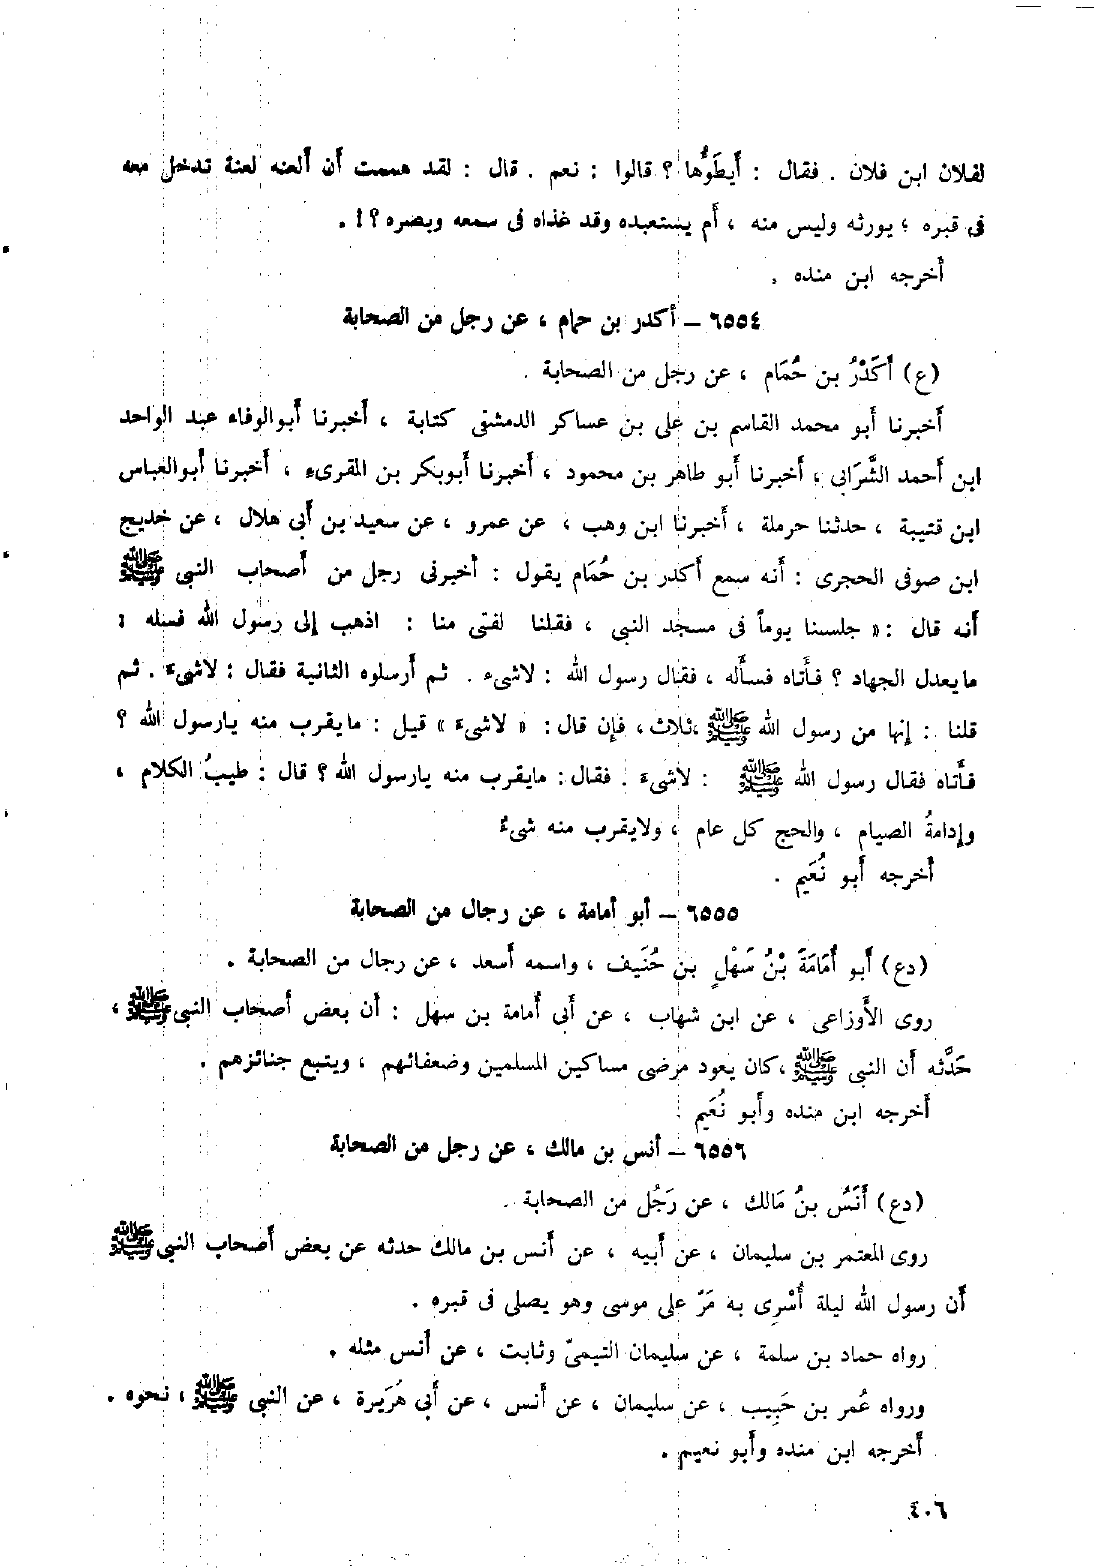 لفلان ابن فلان . فقال : أَيطَؤُها ؟ قالوا : نعم . قال : لقد هممت أن ألعنه لعنة تدخل معه
فى قبره ؛ يورثه وليس منه ، أم يستعبده وقد غذاه فى سمعه وبصره ؟ ! .
أخرجه ابن منده .
٦٥٥٤ – أكدر بن حمام ، عن رجل من الصحابة
(ع) أَكْدَرُ بن حُمَام ، عن رجل من الصحابة .
أخبرنا أبو محمد القاسم بن على بن عساكر الدمشقى كتابة ، أخبرنا أبو الوفاء عبد الواحد
ابن أحمد الشَّرَابي ، أخبرنا أبو طاهر بن محمود ، أخبرنا أبوبكر بن المقرىء ، أخبرنا أبوالعباس
ابن قتيبة ، حدثنا حرملة ، أخبرنا ابن وهب ، عن عمرو ، عن سعيد بن أبى هلال ، عن خديج
ابن صوفى الحجرى : أنه سمع أكدر بن حُمَام يقول : أخبرنى رجل من أصحاب النبى ﷺ
أنه قال : « جلسنا يوماً فى مسجد النبى ، فقلنا لفتى منا : اذهب إلى رسول الله فسله :
مايعدل الجهاد ؟ فأتاه فسأله ، فقال رسول الله : لاشىء . ثم أرسلوه الثانية فقال : لاشىء . ثم
قلنا : إنها من رسول الله ﷺ ،ثلاث ، فإن قال : « لاشىء » قيل : مايقرب منه يارسول الله ؟
فأتاه فقال رسول الله ﷺ : لاشىء . فقال : مايقرب منه يارسول الله ؟ قال : طيبُ الكلام ،
وإدامةُ الصيام ، والحج كل عام ، ولايقرب منه شىءٌ
أخرجه أبو نُعَيم .
٦٥٥٥ – أبو أمامة ، عن رجال من الصحابة
(دع) أبو أُمَامَةَ بْنُ سَهْلِ بن حُنَيف ، واسمه أسعد ، عن رجال من الصحابة .
روى الأوزاعى ، عن ابن شهاب ، عن أبى أُمامة بن سهل : أن بعض أصحاب النبى ﷺ ،
حَدَّثه أن النبى ﷺ ،كان يعود مرضى مساكين المسلمين وضعفائهم ، ويتبع جنائزهم .
أخرجه ابن منده وأبو نُعَيم .
٦٥٥٦ – أنس بن مالك ، عن رجل من الصحابة
(دع) أَنَسُ بنُ مَالك ، عن رَجُل من الصحابة .
روى المعتمر بن سليمان ، عن أبيه ، عن أنس بن مالك حدثه عن بعض أصحاب النبى ﷺ
أن رسول الله ليلة أُسْرِى به مَرّ على موسى وهو يصلى فى قبره .
رواه حماد بن سلمة ، عن سليمان التيمىّ وثابت ، عن أنس مثله .
ورواه عُمر بن حَبِيب ، عن سليمان ، عن أنس ، عن أبى هُرَيرة ، عن النبى ﷺ ، نحوه .
أخرجه ابن منده وأبو نعيم .
٤٠٦